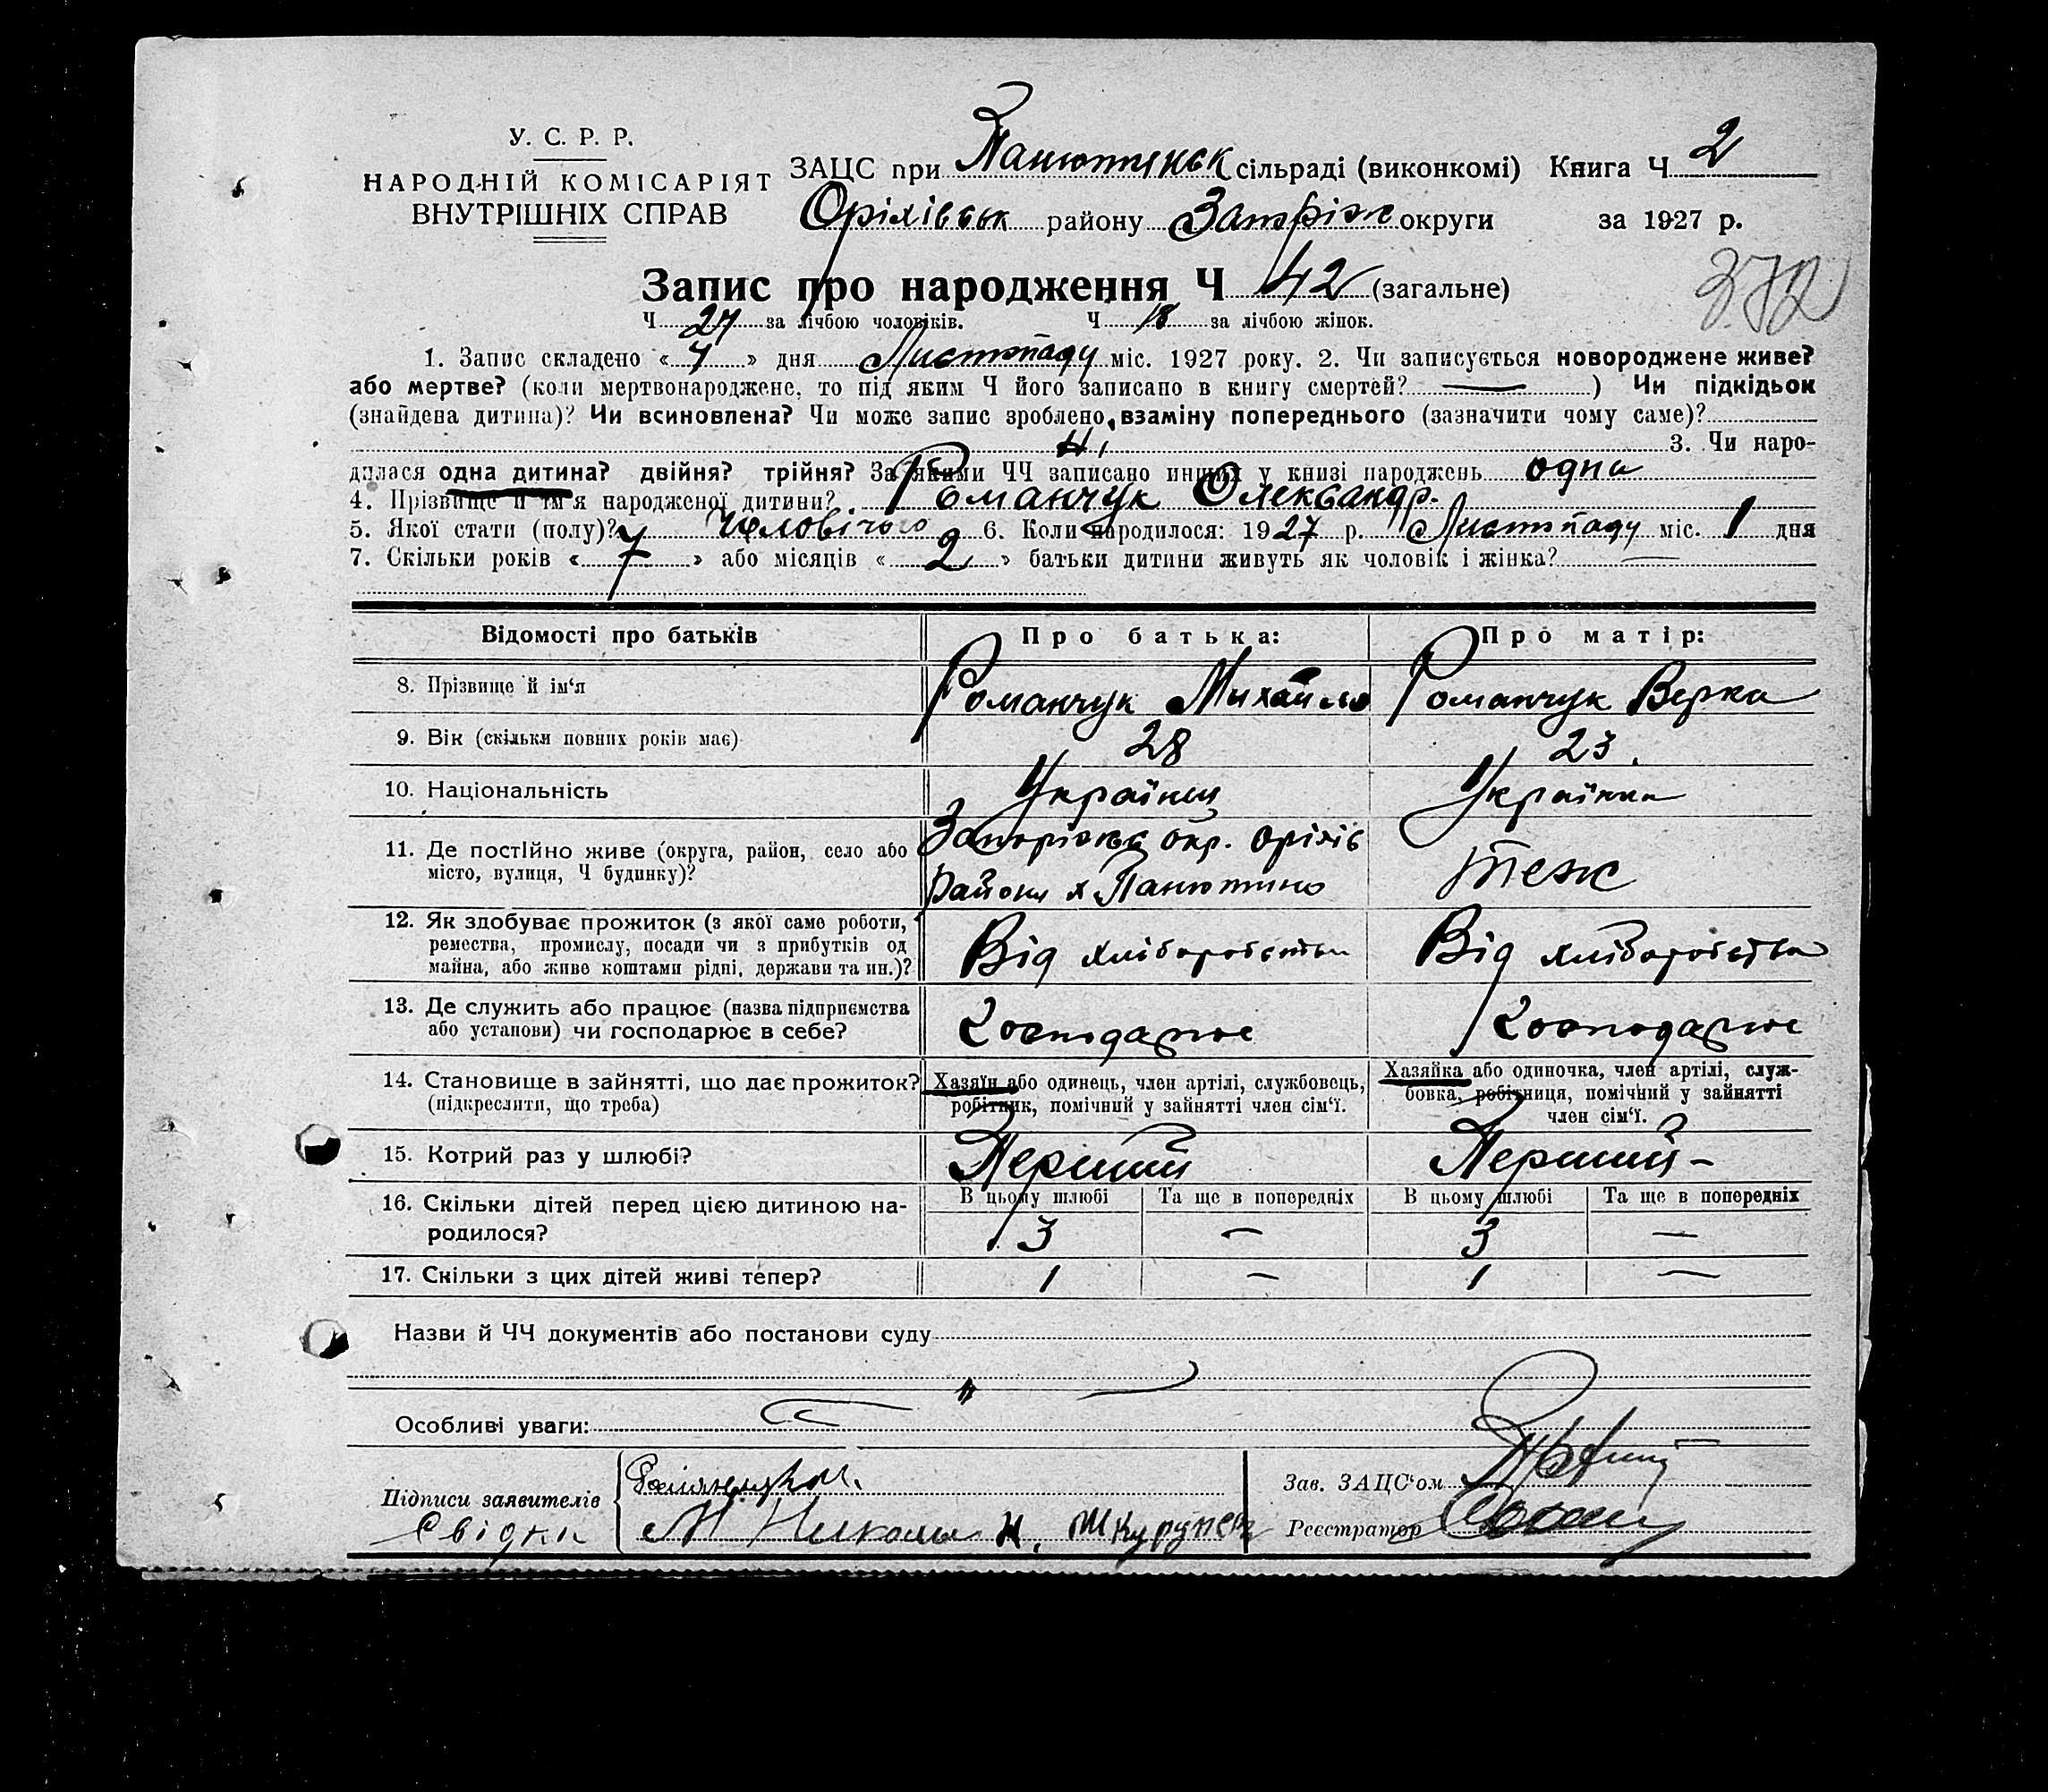 У. С. Р. Р.
НАРОДНІЙ КОМІСАРІЯТ
ВНУТРІШНІХ СПРАВ
ЗАЦС при Панютинськ сільраді (виконкомі) Книга Ч 2
Оріхівськ району Запоріж округи за 1927 р.
372
Запис про народження Ч 42 (загальне)
Ч 24 за лічбою чоловіків. Ч 18 за лічбою жінок.
1. Запис складено « 7 » дня Листопаду міс. 1927 року. 2. Чи записується новороджене живе?
або мертве? (коли мертвонароджене, то під яким Ч його записано в книгу смертей? — ) Чи підкідьок
(знайдена дитина)? Чи всиновлена? Чи може запис зроблено взаміну попереднього (зазначити чому саме)?
3. Чи наро-
дилася одна дитина? двійня? трійня? За якими ЧЧ записано инших у книзі народжень одна
4. Прізвище й ім'я народженої дитини? Романчук Олександр.
5. Якої стати (полу)? Чоловічого 6. Коли народилося: 1927 р. Листопаду міс. 1 дня
7. Скільки років « 7 » або місяців « 2 » батьки дитини живуть як чоловік і жінка? —
Відомості про батьків Про батька: Про матір:
8. Прізвище й ім'я Романчук Михайло Романчук Верка
9. Вік (скільки повних років має) 28 23.
10. Національність Українець Українка
11. Де постійно живе (округа, район, село або
місто, вулиця, Ч будинку)?
Запорізьк окр. Оріхів
Района х Панютино
теж
12. Як здобуває прожиток (з якої саме роботи,
ремества, промислу, посади чи з прибутків од
майна, або живе коштами рідні, держави та ин.)?
Від хліборобства Від хліборобства
13. Де служить або працює (назва підприємства
або установи) чи господарює в себе?
Господарює Господарює
14. Становище в зайнятті, що дає прожиток?
(підкреслити, що треба)
Хазяїн або одинець, член артілі, службовець,
робітник, помічний у зайнятті член сім'ї.
Хазяйка або одиночка, член артілі, служ-
бовка, робітниця, помічний у зайнятті
член сім'ї.
15. Котрий раз у шлюбі? Перший Перший –
16. Скільки дітей перед цією дитиною на-
родилося?
В цьому шлюбі Та ще в попередніх В цьому шлюбі Та ще в попередніх
3 — 3 —
17. Скільки з цих дітей живі тепер? 1 — 1 —
Назви й ЧЧ документів або постанови суду
Особливі уваги:
Підписи заявителів
Свідки
Н. Шкурупей
Зав. ЗАЦС'ом
Реєстратор